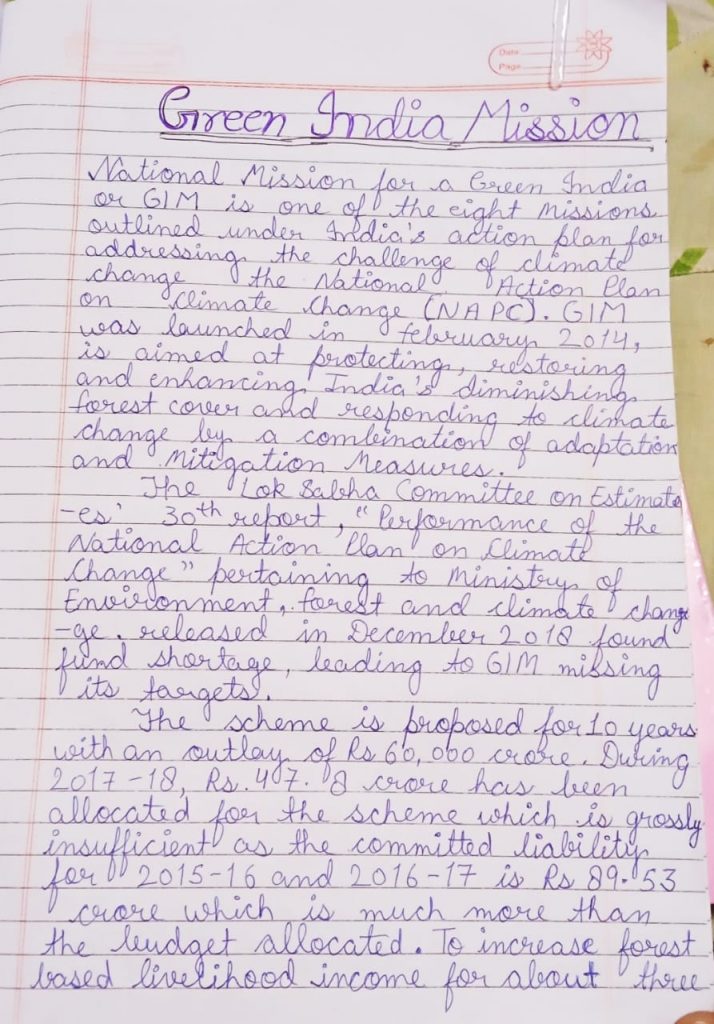 Date
Page
Green India Mission
National Mission for a Green India
or GIM is one of the eight Missions
outlined under India's action plan for
addressing the challenge of climate
change the National Action Plan
on Climate Change (NAPC). GIM
was launched in february 2014,
is aimed at protecting, restoring
and enhancing India's diminishing
forest cover and responding to climate
change by a combination of adaptation
and Mitigation Measures.
The Lok Sabha Committee on Estimat
-es' 30th report, "Performance of the
National Action Plan on Climate
Change" pertaining to Ministry of
Environment, forest and climate chang
-ge. released in December 2018 found
fund shortage, leading to GIM missing
its targets.
The scheme is proposed for 10 years
with an outlay of Rs 60,000 crore. During
2017-18, Rs. 47.8 crore has been
allocated for the scheme which is grossly
insufficient as the committed liability
for 2015-16 and 2016-17 is Rs 89.53
crore which is much more than
the budget allocated. To increase forest
based livelihood income for about three